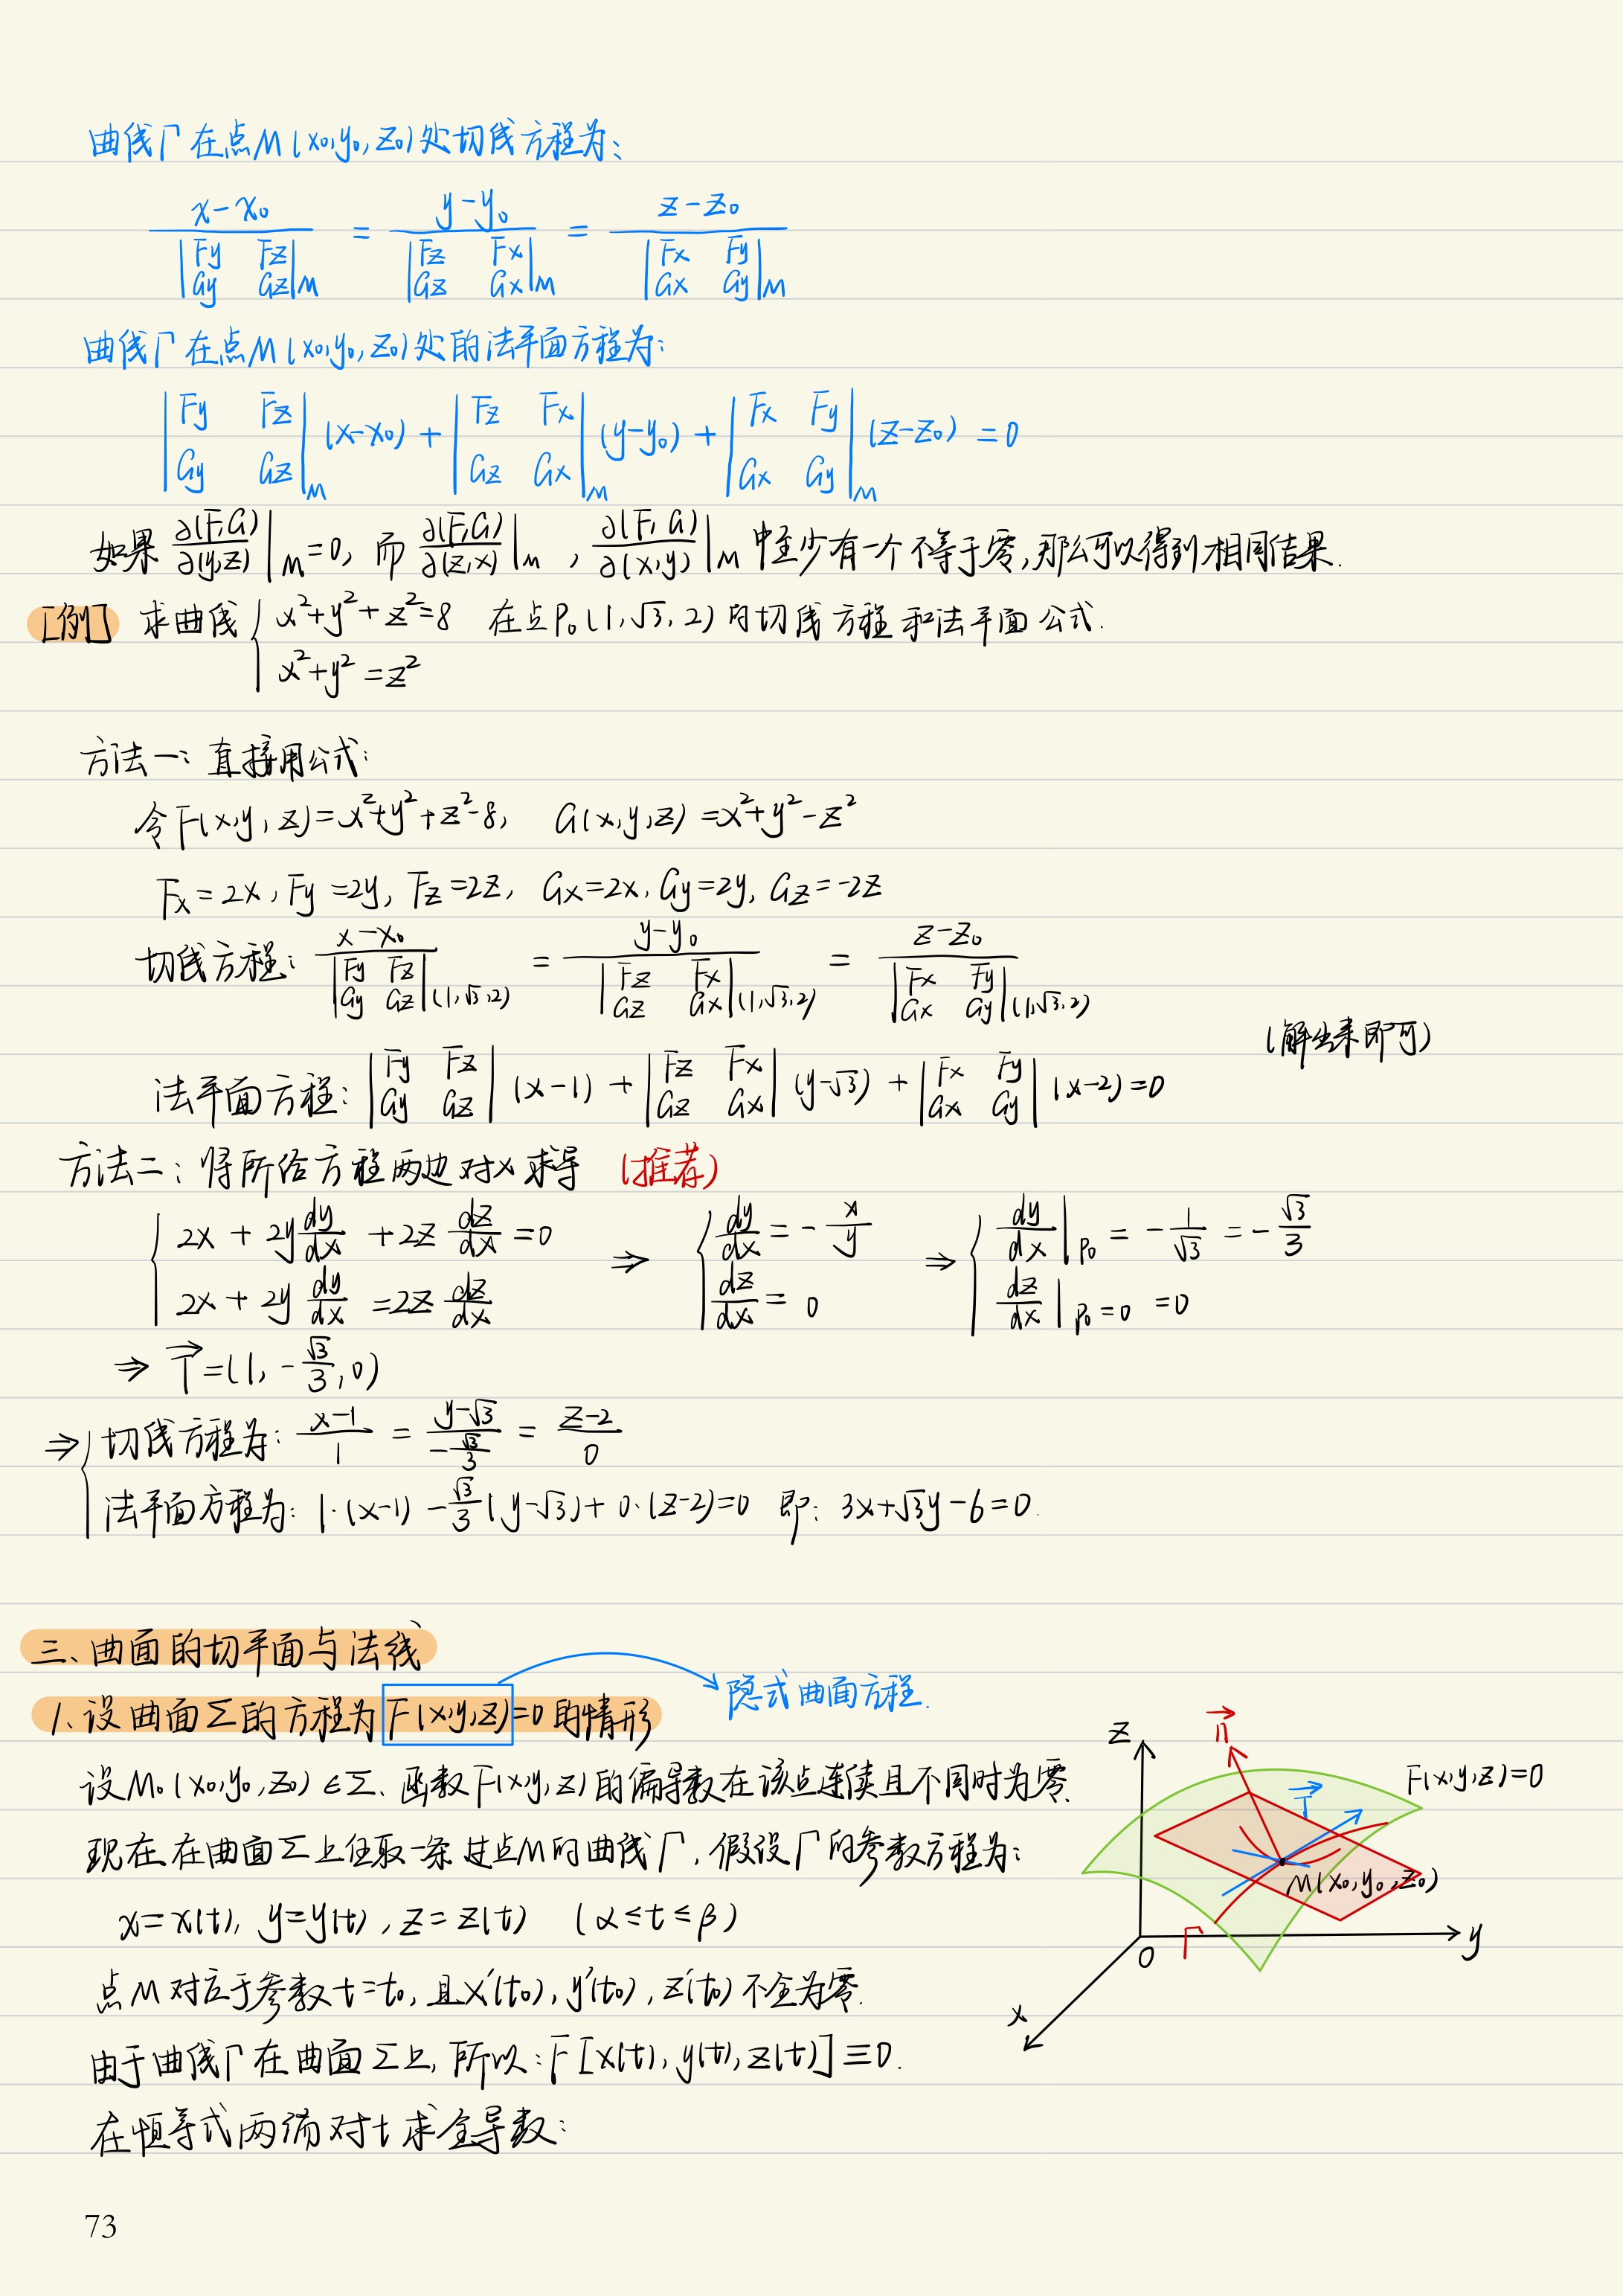 曲线Γ在点M(x₀,y₀,z₀)处切线方程为:
(x-x₀)/|Fy Fz; Gy Gz|_M = (y-y₀)/|Fz Fx; Gz Gx|_M = (z-z₀)/|Fx Fy; Gx Gy|_M
曲线Γ在点M(x₀,y₀,z₀)处的法平面方程为:
|Fy Fz; Gy Gz|_M (x-x₀) + |Fz Fx; Gz Gx|_M (y-y₀) + |Fx Fy; Gx Gy|_M (z-z₀) = 0
如果 ∂(F,G)/∂(y,z)|_M = 0, 而 ∂(F,G)/∂(z,x)|_M , ∂(F,G)/∂(x,y)|_M 中至少有一个不等于零,那么可以得到相同结果.
[例] 求曲线 { x²+y²+z²=8 在点P₀(1,√3,2)的切线方程和法平面公式.
x²+y²=z²
方法一: 直接用公式:
令F(x,y,z)=x²+y²+z²-8, G(x,y,z)=x²+y²-z²
Fx=2x, Fy=2y, Fz=2z, Gx=2x, Gy=2y, Gz=-2z
切线方程: (x-x₀)/|Fy Fz; Gy Gz|(1,√3,2) = (y-y₀)/|Fz Fx; Gz Gx|(1,√3,2) = (z-z₀)/|Fx Fy; Gx Gy|(1,√3,2)
(解出来即可)
法平面方程: |Fy Fz; Gy Gz| (x-1) + |Fz Fx; Gz Gx| (y-√3) + |Fx Fy; Gx Gy| (x-2)=0
方法二: 将所给方程两边对x求导 (推荐)
{ 2x + 2y dy/dx + 2z dz/dx = 0 ⇒ { dy/dx = -x/y ⇒ { dy/dx|P₀ = -1/√3 = -√3/3
2x + 2y dy/dx = 2z dz/dx dz/dx = 0 dz/dx|P₀=0 = 0
⇒ T⃗=(1, -√3/3, 0)
⇒ { 切线方程为: (x-1)/1 = (y-√3)/(-√3/3) = (z-2)/0
法平面方程为: 1·(x-1) -√3/3(y-√3)+0·(z-2)=0 即: 3x+√3y-6=0.
三、曲面的切平面与法线
隐式曲面方程.
1、设曲面Σ的方程为F(x,y,z)=0的情形
设M₀(x₀,y₀,z₀)∈Σ、函数F(x,y,z)的偏导数在该点连续且不同时为零.
现在在曲面Σ上任取一条过点M的曲线Γ, 假设Γ的参数方程为:
x=x(t), y=y(t), z=z(t) (α≤t≤β)
点M对应于参数t=t₀, 且x'(t₀), y'(t₀), z'(t₀)不全为零.
由于曲线Γ在曲面Σ上, 所以: F[x(t), y(t), z(t)]≡0.
在恒等式两端对t求全导数:
z
n⃗
F(x,y,z)=0
T⃗
M(x₀,y₀,z₀)
Γ
O
y
x
73